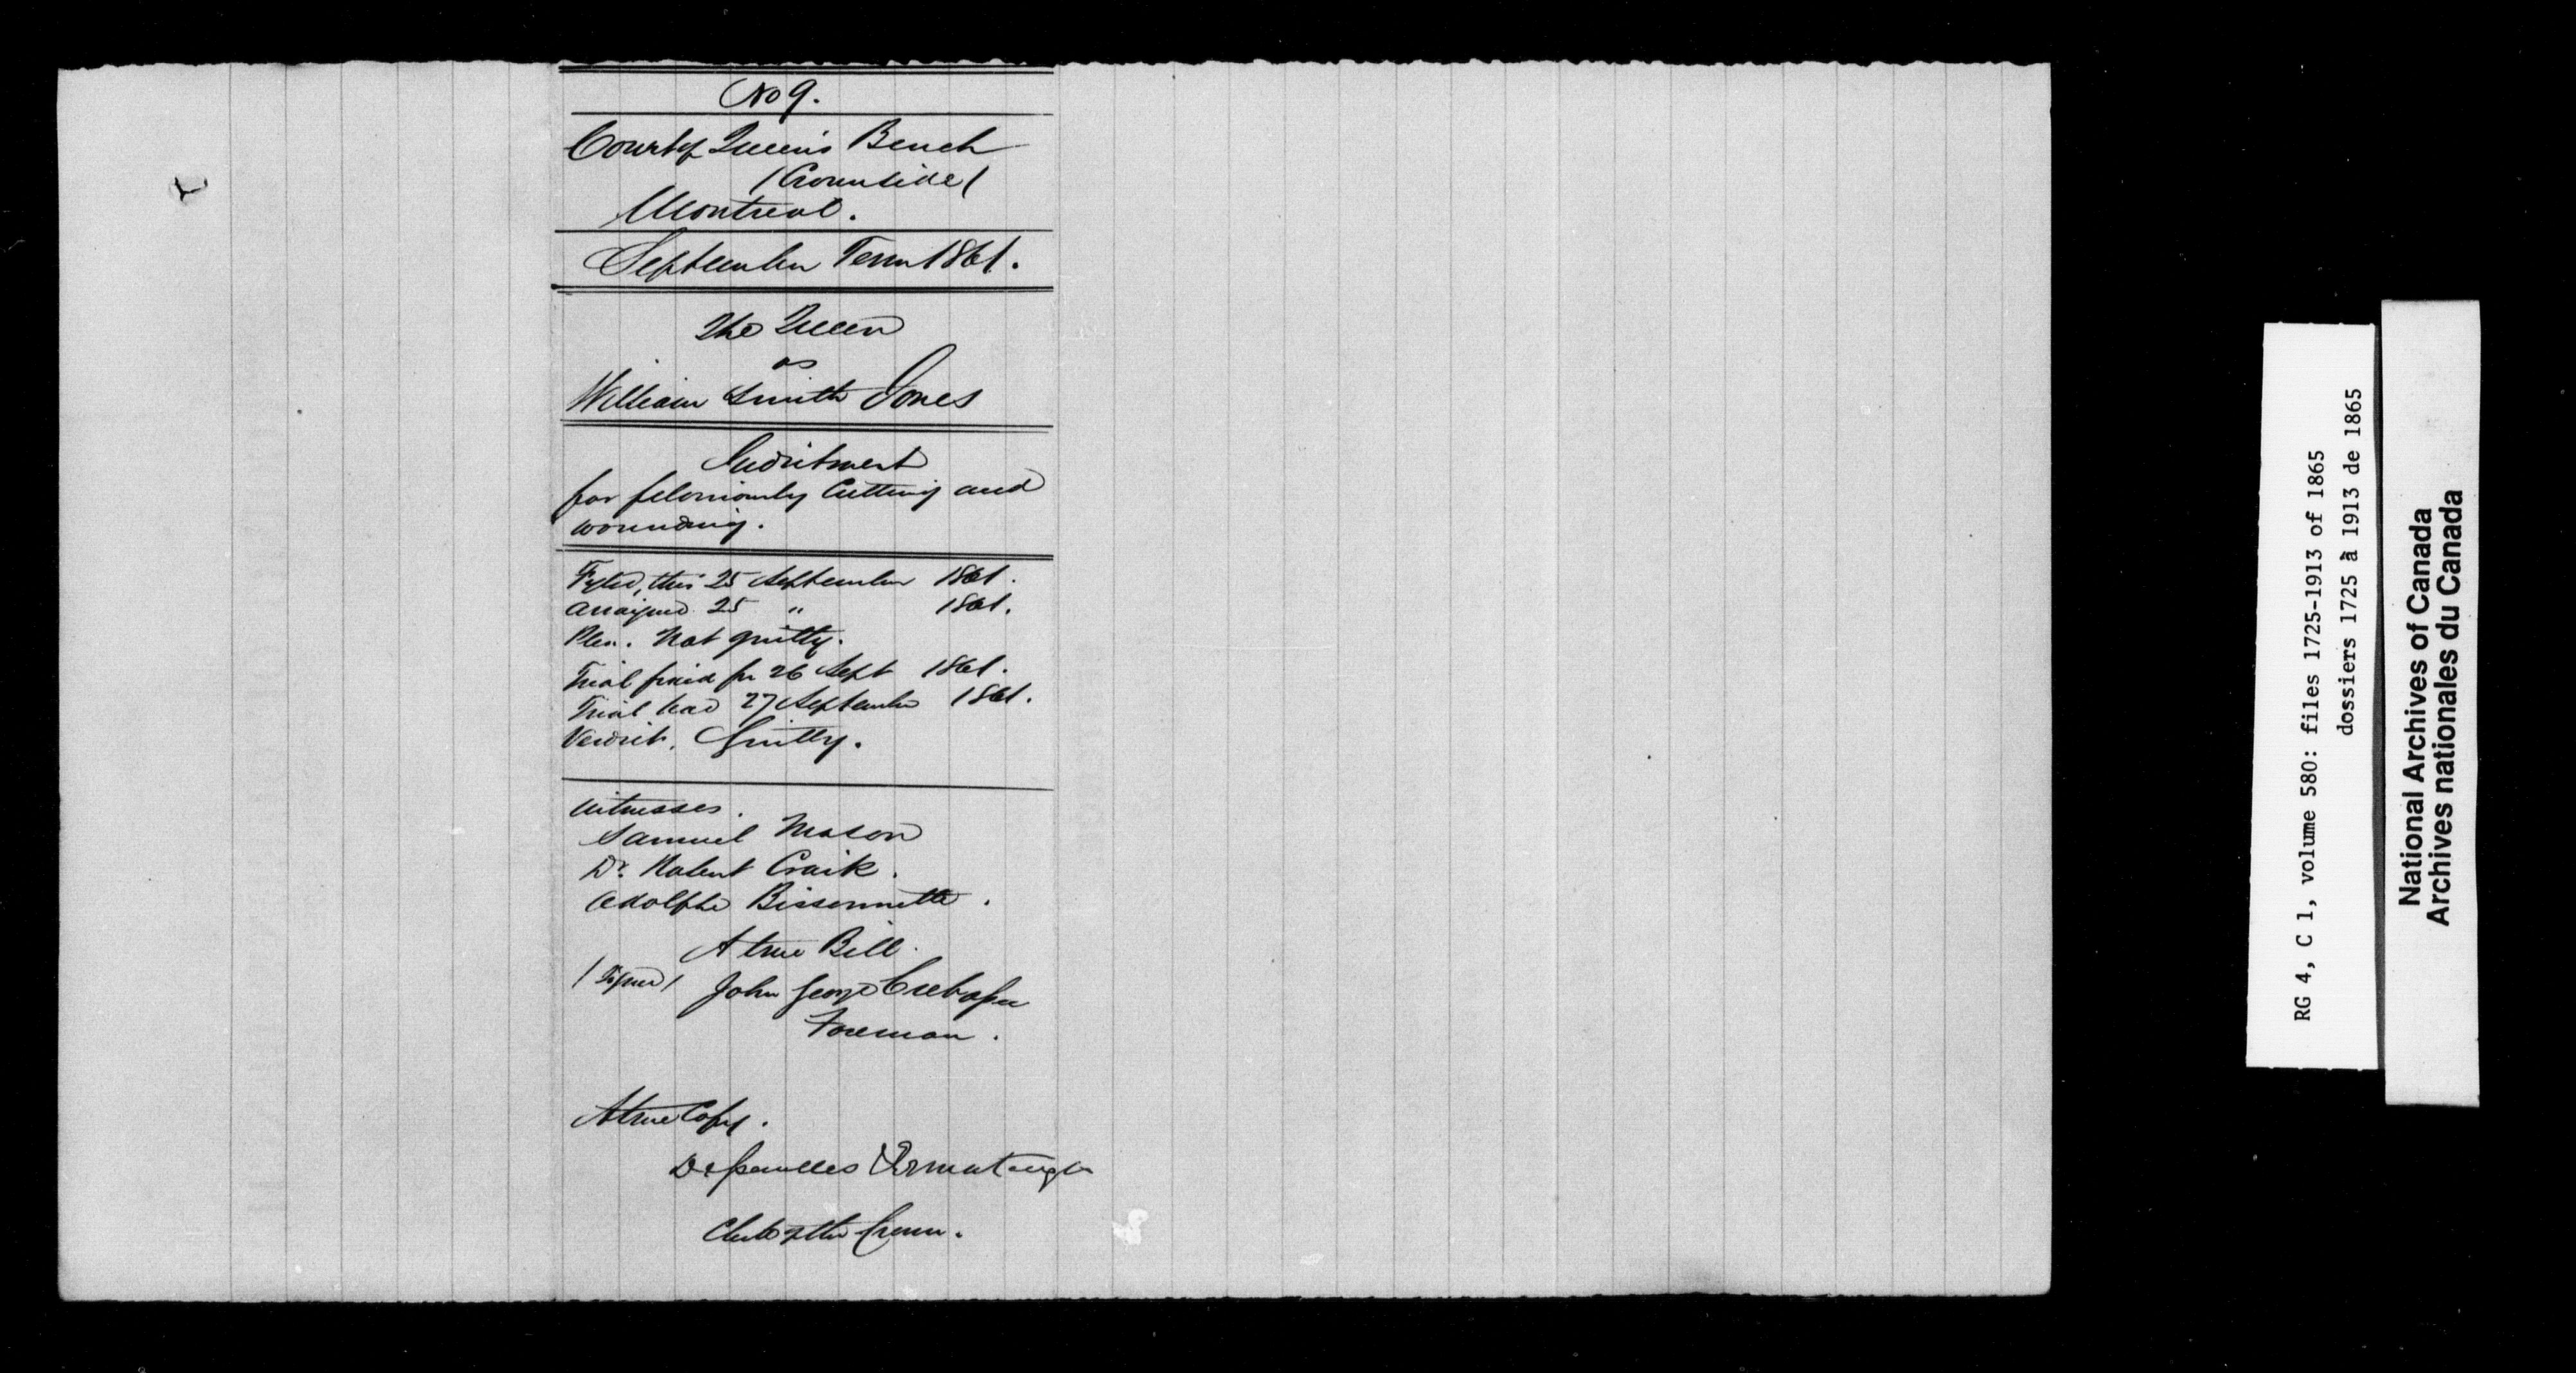 No 9.
Court of Queen's Bench
/Crown side/
Montreal.
September Term 1861.
The Queen
vs
William Smith Jones
Indictment
for feloniously Cutting and
wounding.
Fyled, this 25 September 1861.
arraigned 25 " 1861.
Plea. Not guilty.
Trial fixed for 26 Sept 1861.
Trial had 27 September 1861.
Verdict. Guilty.
Witnesses.
Samuel Mason
Dr. Robert Craik.
Adolphe Bissonnette.
A true Bill.
/Signed/ John George
Foreman.
A true Copy.
Clerk of the Crown.
RG 4, C 1, volume 580: files 1725-1913 of 1865
dossiers 1725 à 1913 de 1865
National Archives of Canada
Archives nationales du Canada